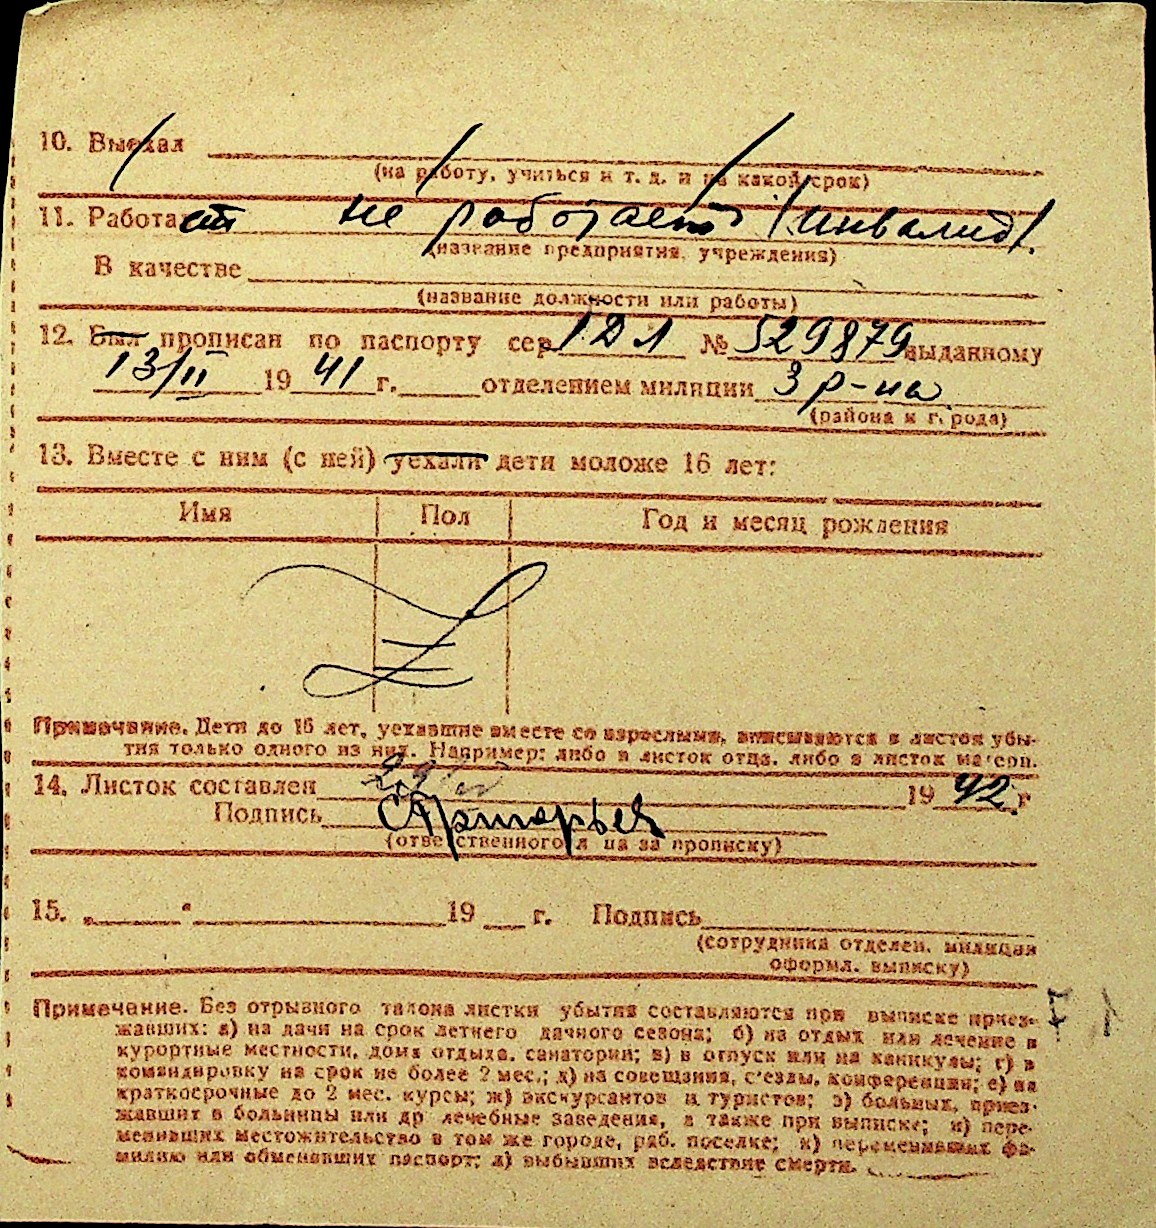 10. Выехал
(на работу, учиться и т. д. и на какой срок)
11. Работает не работает (инвалид).
(название предприятия, учреждения)
В качестве
(название должности или работы)
12. Был прописан по паспорту сер. № 529879 выданному
13/II 1941 г. отделением милиции 3 р-на
(района и города)
13. Вместе с ним (с ней) уехали дети моложе 16 лет:
Имя Пол Год и месяц рождения
Примечание. Дети до 16 лет, уехавшие вместе со взрослыми, вписываются в листок убы-
тия только одного из них. Например: либо в листок отца, либо в листок матери.
14. Листок составлен 1942 г
Подпись
(ответственного л ца за прописку)
15. „ “ 19 г. Подпись
(сотрудника отделен. милиции
оформл. выписку)
Примечание. Без отрывного талона листки убытия составляются при выписке приез-
жавших: а) на дачи на срок летнего дачного сезона; б) на отдых или лечение в
курортные местности, дома отдыха, санатории; в) в отпуск или на каникулы; г) в
командировку на срок не более 2 мес.; д) на совещания, с'езды, конференции; е) на
краткосрочные до 2 мес. курсы; ж) экскурсантов и туристов; з) больных, приез-
жавших в больницы или др лечебные заведения, а также при выписке; и) пере-
менивших местожительство в том же городе, раб. поселке; к) переменивших фа-
милию или обменявших паспорт; л) выбывших вследствие смерти.